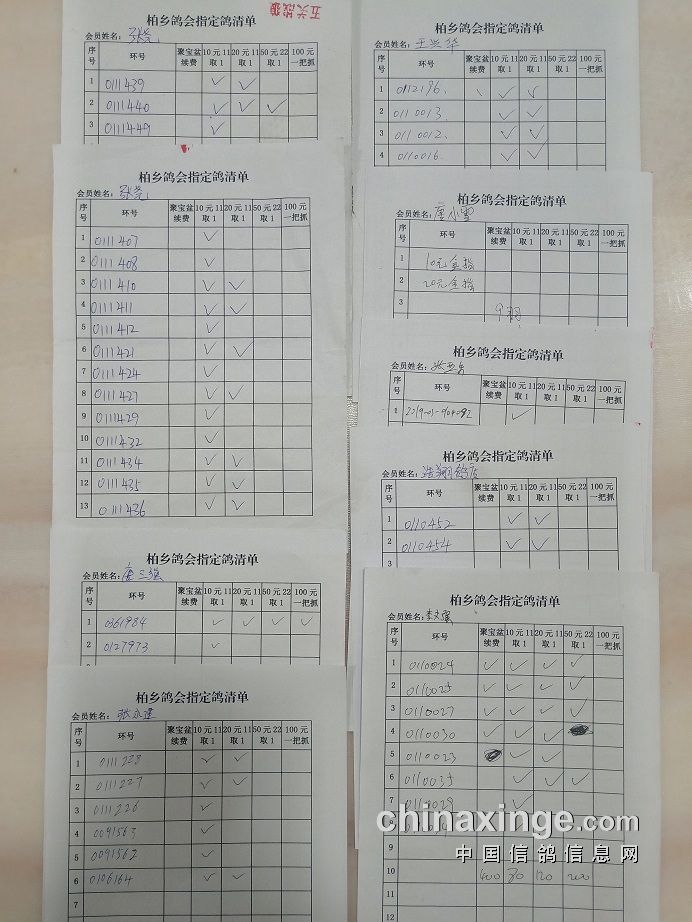 五关战狼
柏乡鸽会指定鸽清单
会员姓名：张尧
序号 环号 聚宝盆续费 10元11取1 20元11取1 50元22取1 100元一把抓
1 0111439 ✓ ✓
2 0111440 ✓ ✓ ✓
3 0111449 ✓
柏乡鸽会指定鸽清单
会员姓名：张尧
序号 环号 聚宝盆续费 10元11取1 20元11取1 50元22取1 100元一把抓
1 0111407 ✓
2 0111408 ✓
3 0111410 ✓ ✓
4 0111411 ✓ ✓
5 0111412 ✓
6 0111421 ✓ ✓
7 0111424 ✓
8 0111427 ✓ ✓
9 0111429 ✓
10 0111432 ✓
11 0111434 ✓ ✓
12 0111435 ✓ ✓
13 0111436 ✓ ✓
柏乡鸽会指定鸽清单
会员姓名：唐三强
序号 环号 聚宝盆续费 10元11取1 20元11取1 50元22取1 100元一把抓
1 0361984 ✓ ✓ ✓ ✓
2 0127973 ✓
柏乡鸽会指定鸽清单
会员姓名：张永建
序号 环号 聚宝盆续费 10元11取1 20元11取1 50元22取1 100元一把抓
1 0111228 ✓ ✓
2 0111227 ✓ ✓
3 0111226 ✓
4 0091563 ✓
5 0091562 ✓
6 0106164 ✓ ✓
7
8
柏乡鸽会指定鸽清单
会员姓名：王兴华
序号 环号 聚宝盆续费 10元11取1 20元11取1 50元22取1 100元一把抓
1 0112196 ✓ ✓
2 0110013 ✓ ✓
3 0110012 ✓ ✓
4 0110016 ✓ ✓
柏乡鸽会指定鸽清单
会员姓名：唐小雪
序号 环号 聚宝盆续费 10元11取1 20元11取1 50元22取1 100元一把抓
1 10元全指
2 20元全指
3 9羽
柏乡鸽会指定鸽清单
会员姓名：
序号 环号 聚宝盆续费 10元11取1 20元11取1 50元22取1 100元一把抓
1 ✓
柏乡鸽会指定鸽清单
会员姓名：浩翔鸽店
序号 环号 聚宝盆续费 10元11取1 20元11取1 50元22取1 100元一把抓
1 0110452 ✓ ✓
2 0110454 ✓ ✓
柏乡鸽会指定鸽清单
会员姓名：
序号 环号 聚宝盆续费 10元11取1 20元11取1 50元22取1 100元一把抓
1 0110024 ✓ ✓ ✓ ✓
2 0110025 ✓ ✓ ✓ ✓
3 0110027 ✓ ✓ ✓ ✓
4 0110030 ✓ ✓ ✓
5 0110023 ✓ ✓
6 0110035 ✓ ✓ ✓
7 0110029 ✓
8
9
10 400 80 120 200
chinaxinge.com
中国信鸽信息网